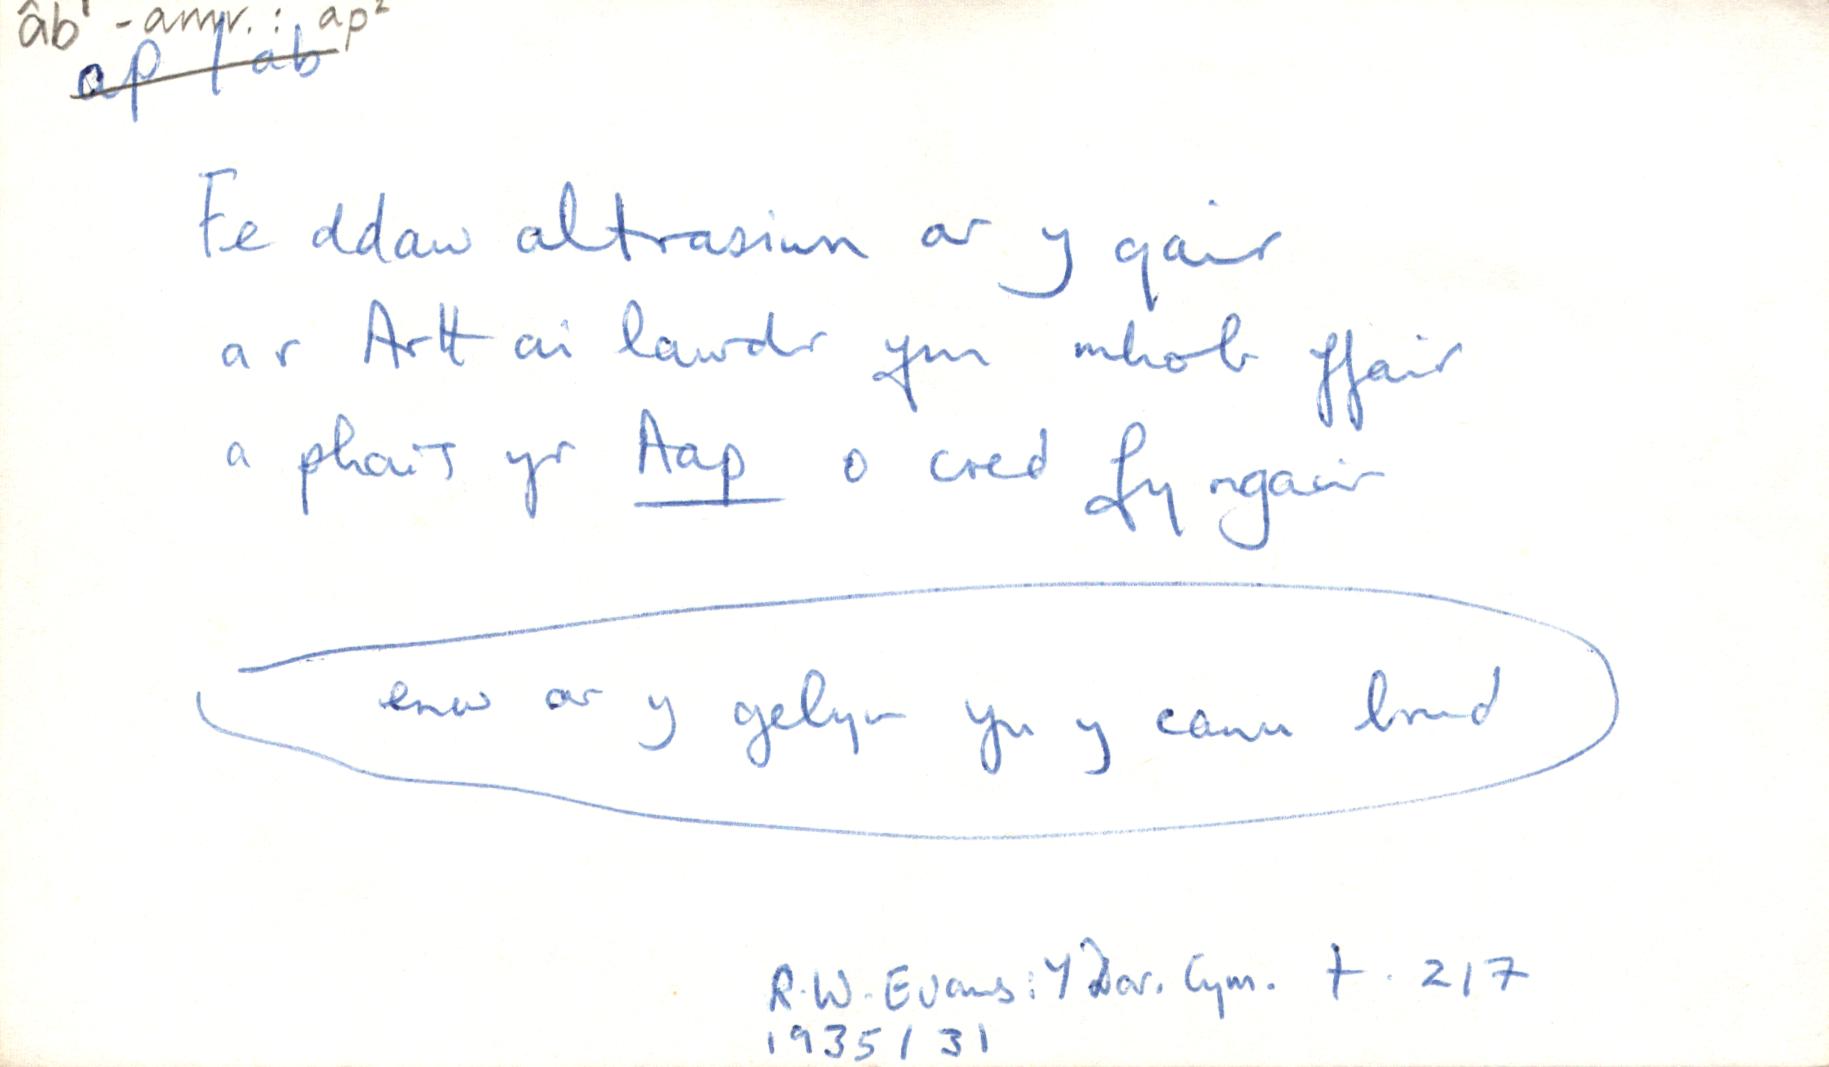 âb¹ - amr. : ap²
ap / ab
Fe ddaw altrasiwn ar y gair
ar Artt ai lawdr ym mhob ffair
a phais yr Aap o cred fy ngair
enw ar y gelyn yn y canu brud
R.W. Evans: Y Dar. Cym. t. 217
1935 / 31